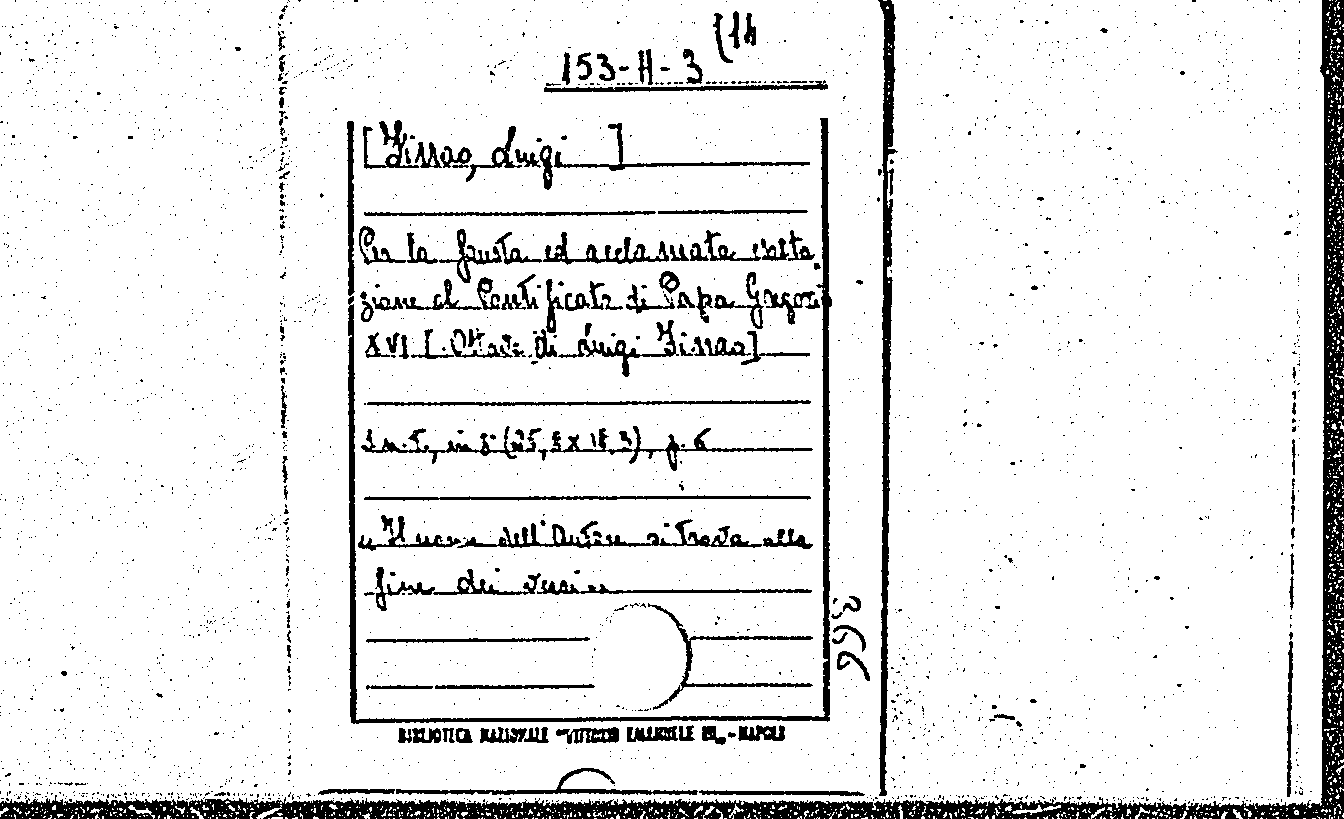 153-H-3 (14
[Zirrao, Luigi ]
Per la fausta ed acclamata esalta,
zione al Pontificato di Papa Gregorio
XVI [. Ottave di Luigi Zirrao]
S.n.t., in 8° (25,5 x 18,3), p. 6
"Il nome dell'Autore si trova alla
fine dei versi "
BIBLIOTECA NAZIONALE "VITTORIO EMANUELE III" - NAPOLI